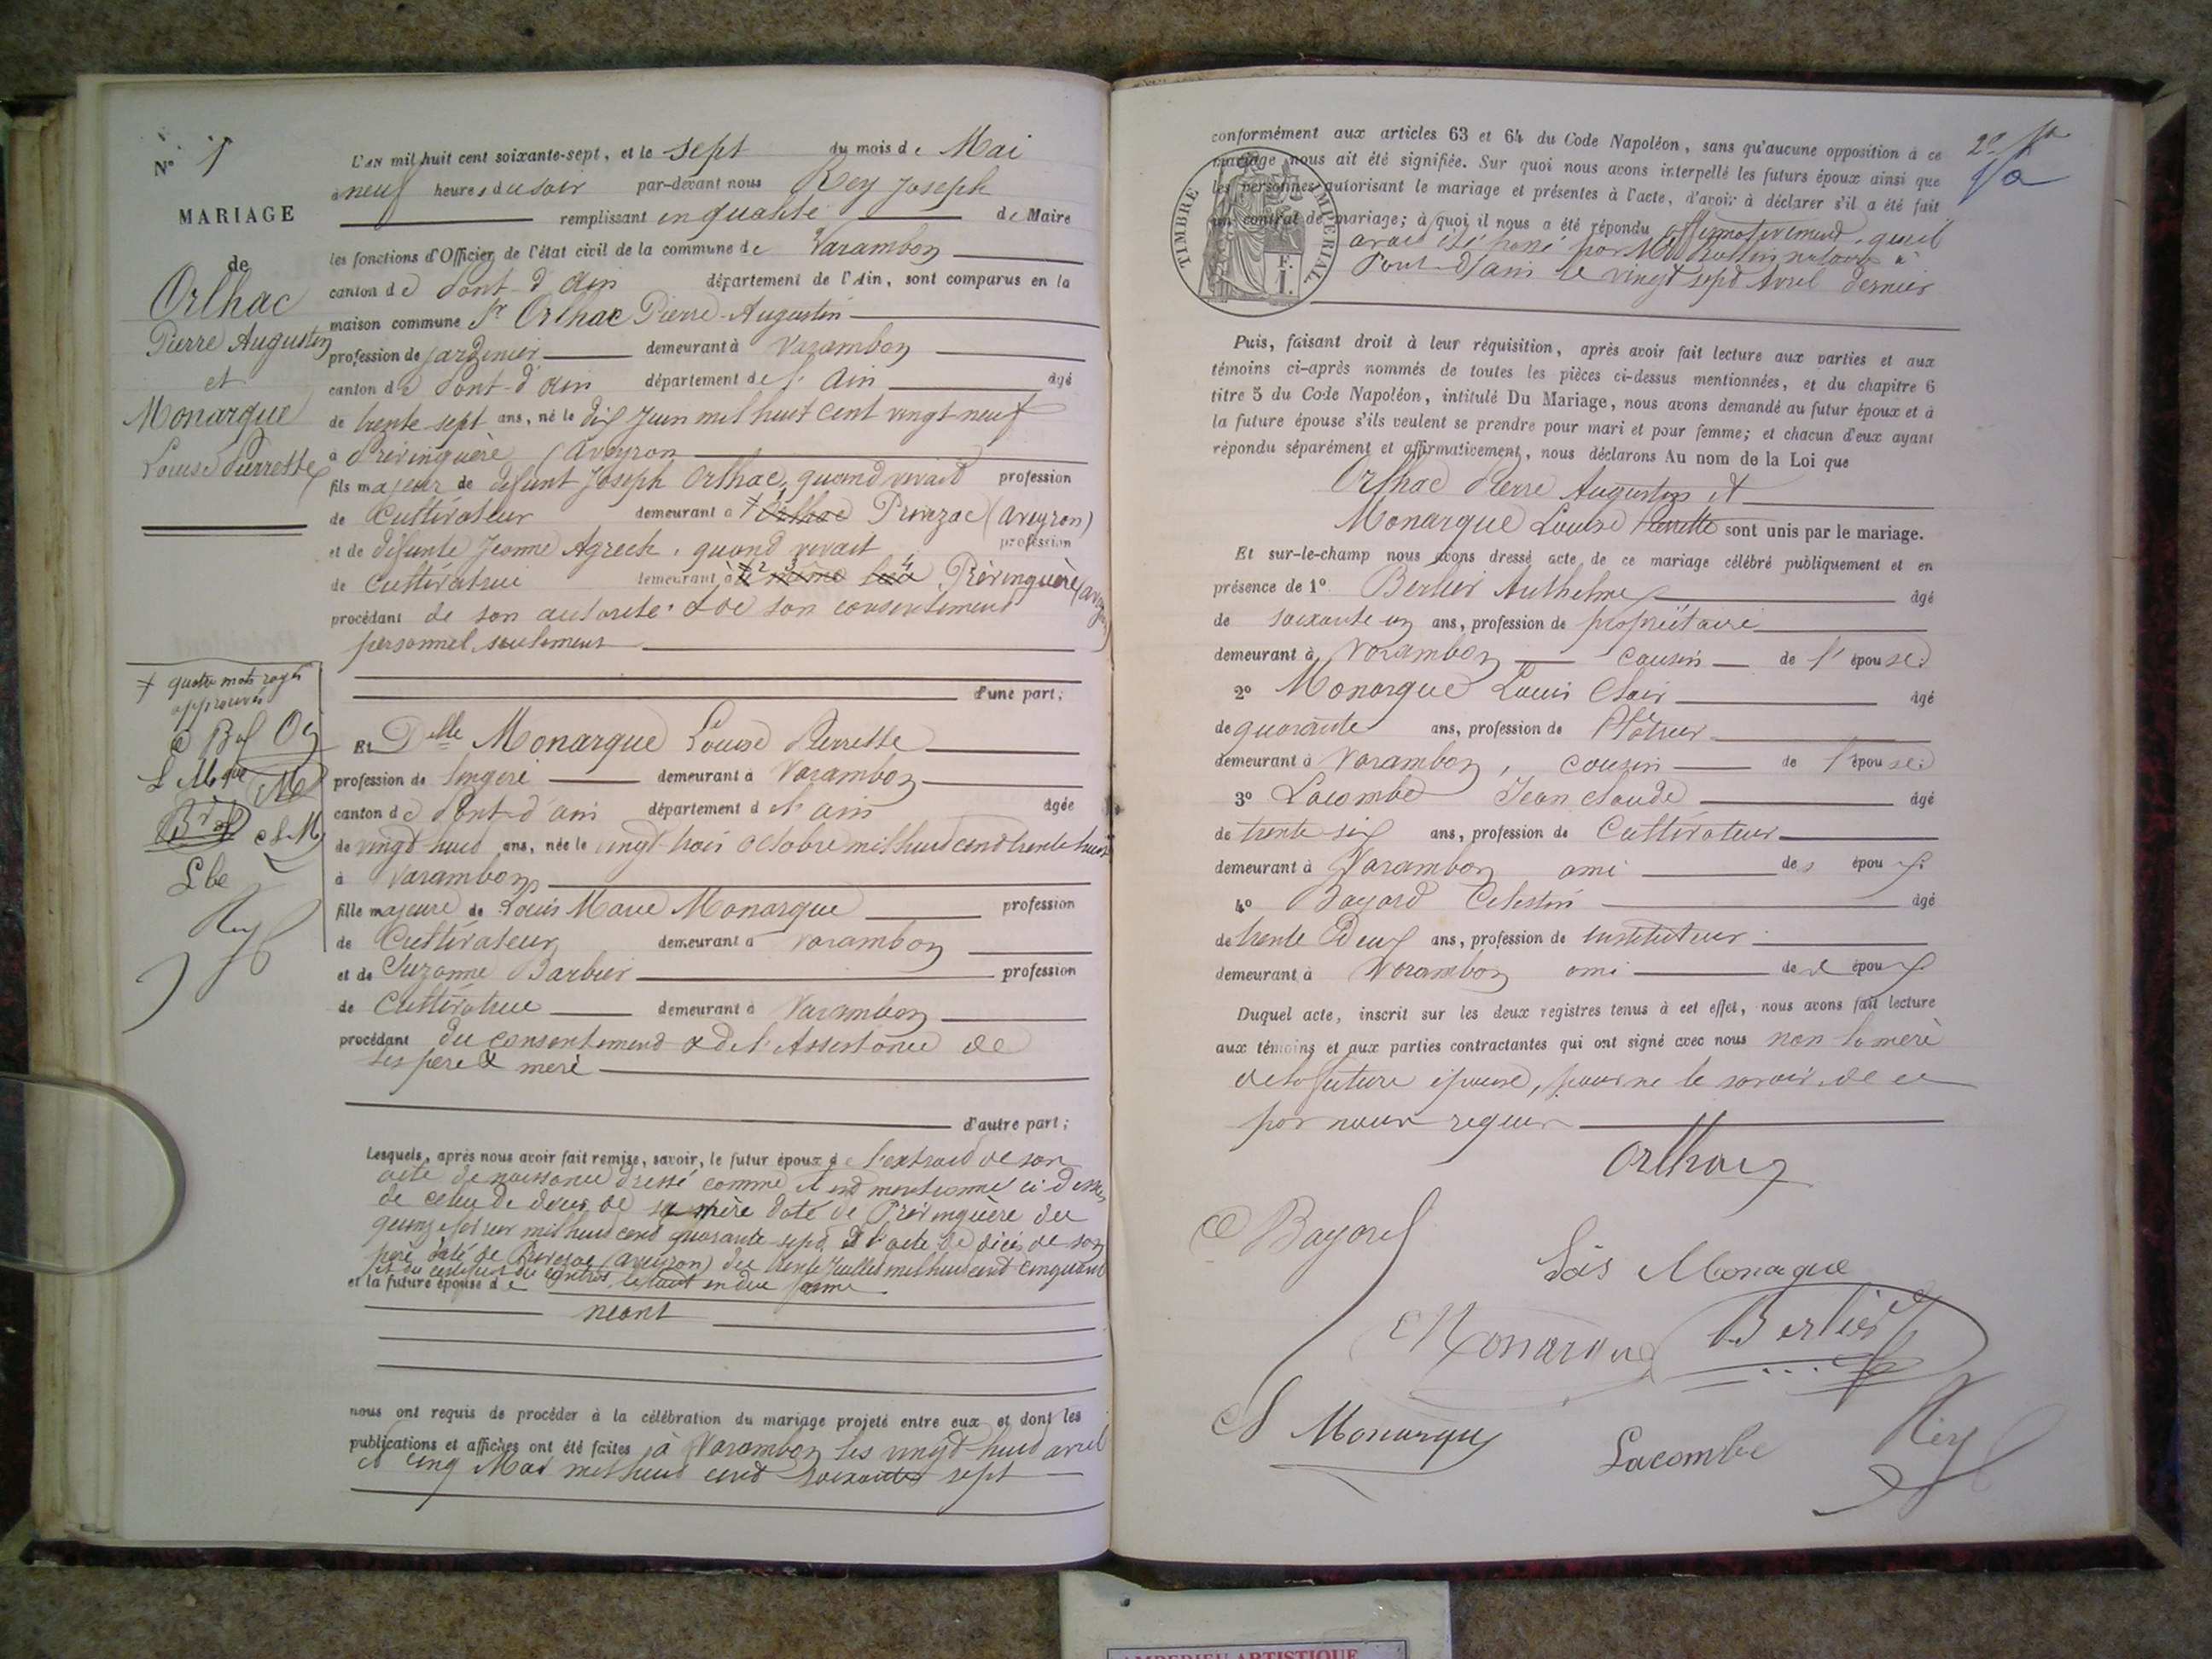 N° 1
MARIAGE
de
Orlhac
Pierre Augustin
et
Monarque
Louise Pierrette
L'AN mil huit cent soixante-sept, et le sept du mois de Mai
à neuf heures du soir par-devant nous Rey Joseph
remplissant en qualité de Maire
les fonctions d'Officier de l'état civil de la commune de Varambon
canton de Pont-d'Ain département de l'Ain, sont comparus en la
maison commune Sr Orlhac Pierre-Augustin
profession de jardinier demeurant à Varambon
canton de Pont-d'Ain département de l'Ain âgé
de trente sept ans, né le dix Juin mil huit cent vingt-neuf
à Prévinquère (Aveyron
fils majeur de défunt Joseph Orlhac, quand vivait profession
de Cultivateur demeurant à Orlhac Privezac (Aveyron)
et de défunte Jeanne Agrech, quand vivait profession
de Cultivatrice demeurant à le même lieu Prévinquère (aveyron)
procédant de son autorité & de son consentement
personnel seulement
d'une part;
quatre mots rayés
approuvés
C Bd Oc
L Mque M
cl M
Lbe
Rey
Et Delle Monarque Louise Pierrette
profession de lingère demeurant à Varambon
canton de Pont-d'ain département de l'ain âgée
de vingt huit ans, née le vingt trois Octobre mil huit cent trente huit
à Varambon
fille majeure de Louis Marie Monarque profession
de Cultivateur demeurant à Varambon
et de Suzanne Barbier profession
de Cultivatrice demeurant à Varambon
procédant du consentement & de l'Assistance de
ses père & mère
d'autre part;
Lesquels, après nous avoir fait remise, savoir, le futur époux de l'extrait de son
acte de naissance dressé comme il est mentionné ci-dessus,
de celui de décès de sa mère daté de Prévinquère du
quinze février mil huit cent quarante-sept, & l'acte de décès de son
père daté de Privezac (aveyron) du trente Juillet mil huit cent cinquante
et la future épouse de le tout en due forme
néant
nous ont requis de procéder à la célébration du mariage projeté entre eux et dont les
publications et affiches ont été faites à Varambon les vingt-huit avril
et cinq Mai mil huit cent soixante sept
conformément aux articles 63 et 64 du Code Napoléon, sans qu'aucune opposition à ce
mariage nous ait été signifiée. Sur quoi nous avons interpellé les futurs époux ainsi que
les personnes autorisant le mariage et présentes à l'acte, d'avoir à déclarer s'il a été fait
un contrat de mariage; à quoi il nous a été répondu affirmativement, qu'il
avait été passé par notaire à
Pont-d'ain le vingt sept Avril dernier
TIMBRE IMPÉRIAL
F.
1.
Puis, faisant droit à leur réquisition, après avoir fait lecture aux parties et aux
témoins ci-après nommés de toutes les pièces ci-dessus mentionnées, et du chapitre 6
titre 5 du Code Napoléon, intitulé Du Mariage, nous avons demandé au futur époux et à
la future épouse s'ils veulent se prendre pour mari et pour femme; et chacun d'eux ayant
répondu séparément et affirmativement, nous déclarons Au nom de la Loi que
Orlhac Pierre Augustin et
Monarque Louise Pierrette sont unis par le mariage.
Et sur-le-champ nous avons dressé acte de ce mariage célébré publiquement et en
présence de 1° Berlier Anthelme âgé
de soixante un ans, profession de propriétaire
demeurant à Varambon cousin de l'épouse.
2° Monarque Louis Clair âgé
de quarante ans, profession de Plâtrier
demeurant à Varambon, cousin de l'épouse.
3° Lacombe Jean Claude âgé
de trente-six ans, profession de Cultivateur
demeurant à Varambon ami des époux.
4° Bayard Celestin âgé
de trente Deux ans, profession de Instituteur
demeurant à Varambon ami de époux
Duquel acte, inscrit sur les deux registres tenus à cet effet, nous avons fait lecture
aux témoins et aux parties contractantes qui ont signé avec nous non la mère
de la future épouse, pour ne le savoir, de ce
par nous requis
Orlhac
C Bayard
Lois Monaque
Monarque
Berlier
Cl Monarque
Lacombe
Rey
AMBERIEU ARTISTIQUE